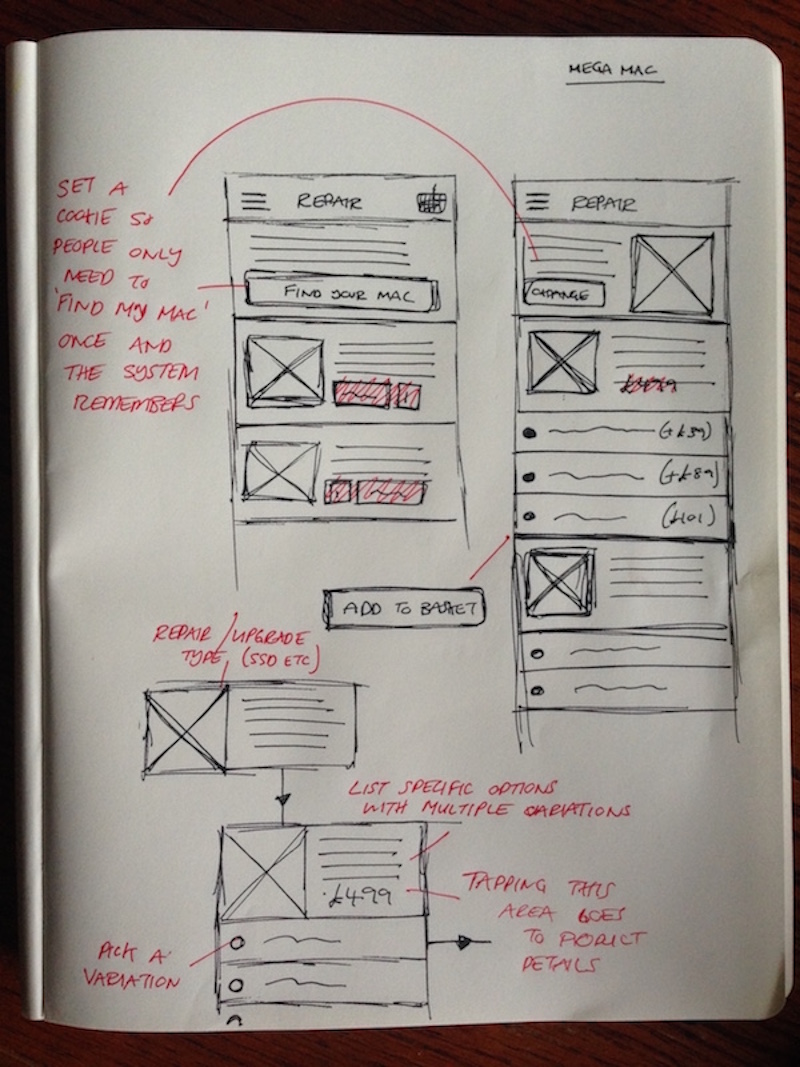 MEGA MAC
SET A
COOKIE SO
PEOPLE ONLY
NEED TO
'FIND MY MAC'
ONCE AND
THE SYSTEM
REMEMBERS
REPAIR
FIND YOUR MAC
REPAIR
CHANGE
(+£39)
(+£89)
(£101)
ADD TO BASKET
REPAIR / UPGRADE
TYPE (SSD ETC)
LIST SPECIFIC OPTIONS
WITH MULTIPLE VARIATIONS
£499
TAPPING THIS
AREA GOES
TO PRODUCT
DETAILS
PICK A
VARIATION